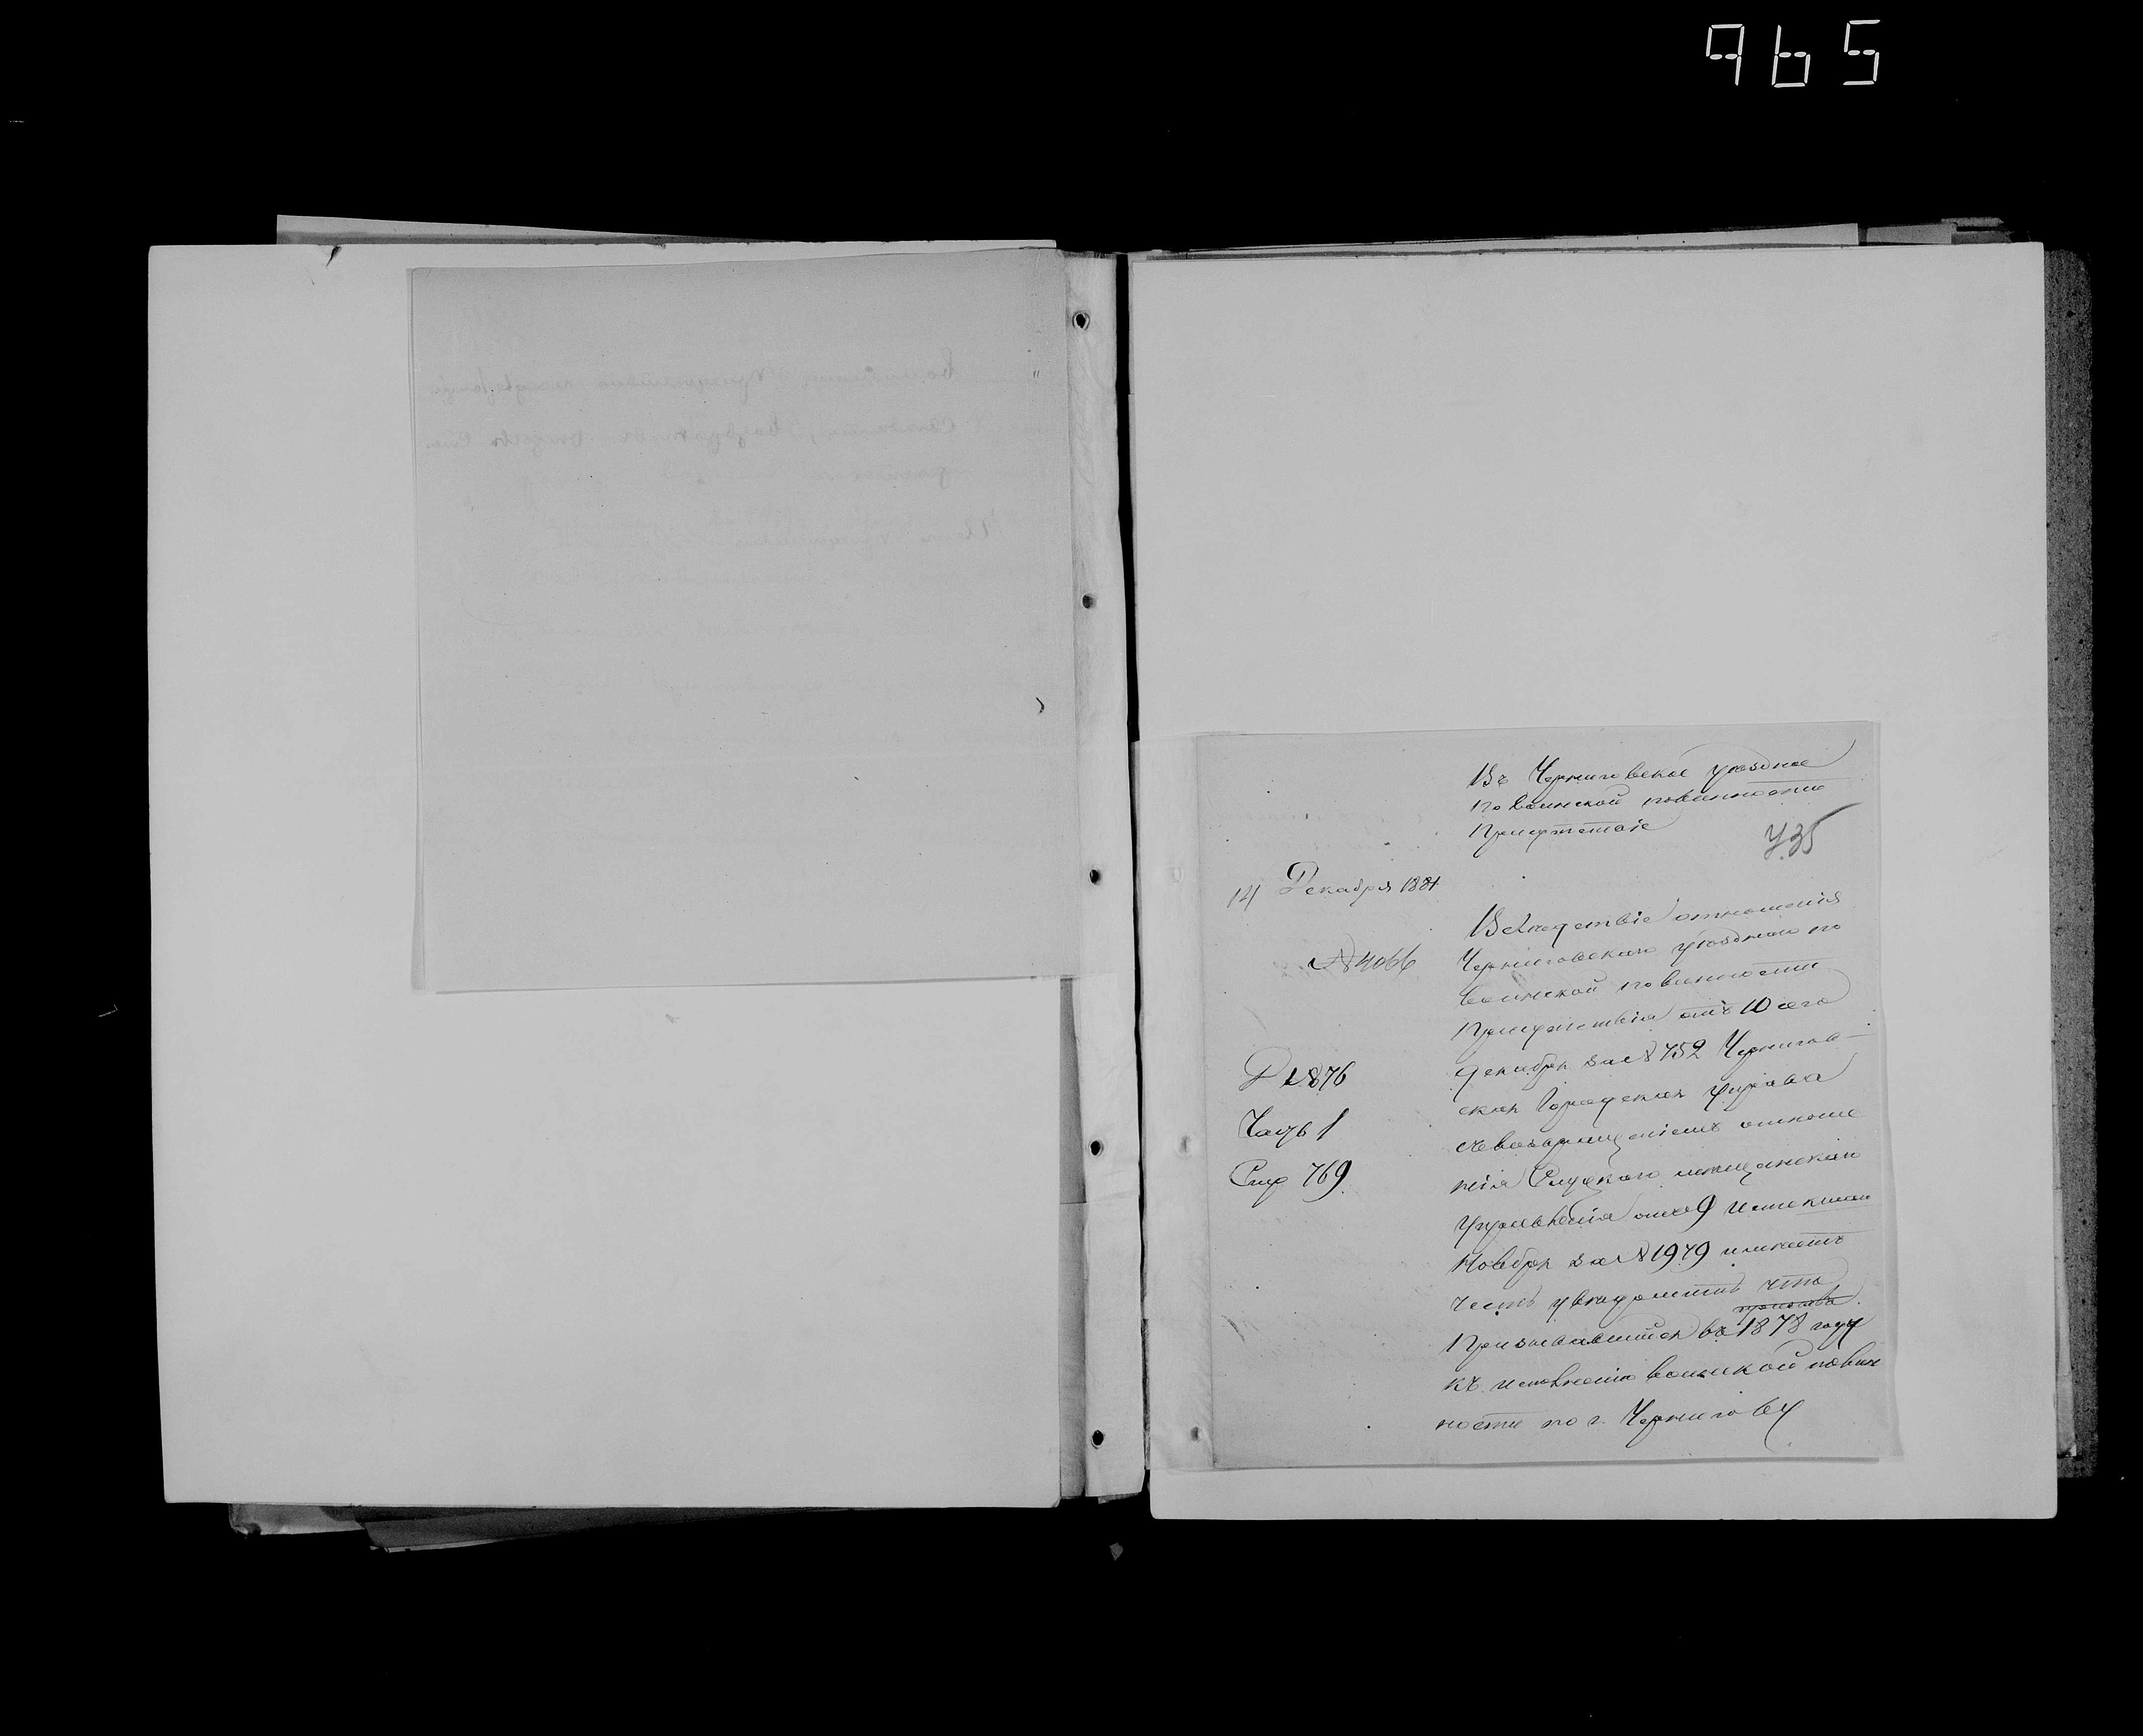 965
Въ Черниговское уѣздное
по воинской повинности
Присутствіе
435
14 Декабря 1881
№ 4066
Д 1876
Часть 1
Стр 769
Вслѣдствіе отношенія
Черниговскаго уѣзднаго по
воинской повинности
Присутствія отъ 10 сего
декабря за № 752 Чернигов-
ская Городская управа
съ возвращеніемъ отноше
нія Слуцкаго мѣщанскаго
Управленія отъ 9 истекшаго
Ноября за № 1979 имѣетъ
честь увѣдомить что
призывавшійся въ 1878 году
къ исполненію воинской повин
ности по г. Чернигову